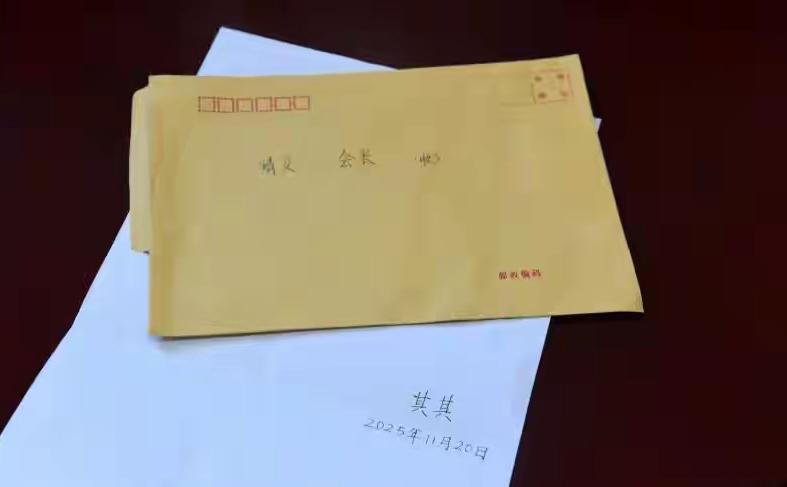 会长 (收)
邮政编码
其其
2025年11月20日